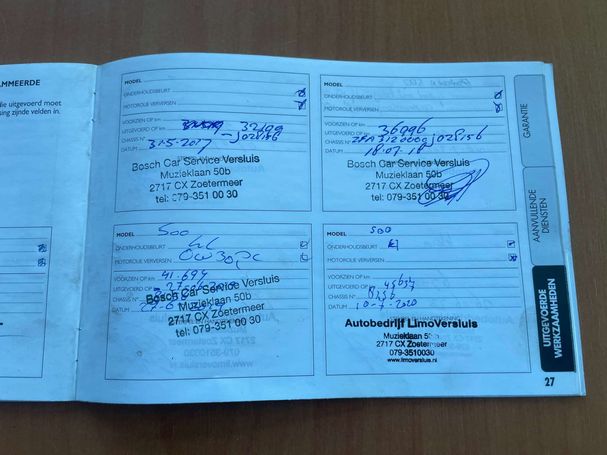 MMEERDE
die uitgevoerd moet
sing zijnde velden in.
MODEL
ONDERHOUDSBEURT
MOTOROLIE VERVERSEN
VOORZIEN OP km
UITGEVOERD OP km 32199
CHASSIS N° J028156
DATUM 31-5-2017
Bosch Car Service Versluis
Muzieklaan 50b
2717 CX Zoetermeer
tel: 079-351 00 30
MODEL
ONDERHOUDSBEURT
MOTOROLIE VERVERSEN
VOORZIEN OP km
UITGEVOERD OP km 36996
CHASSIS N°
DATUM 18-07-18
Bosch Car Service Versluis
Muzieklaan 50b
2717 CX Zoetermeer
tel: 079-351 00 30
MODEL 500
ONDERHOUDSBEURT
MOTOROLIE VERVERSEN
VOORZIEN OP km 41.694
UITGEVOERD OP km
CHASSIS N°
DATUM
Bosch Car Service Versluis
Muzieklaan 50b
2717 CX Zoetermeer
tel: 079-351 00 30
MODEL 500
ONDERHOUDSBEURT
MOTOROLIE VERVERSEN
VOORZIEN OP km
UITGEVOERD OP km
CHASSIS N° 8156
DATUM 10-7-2020
Autobedrijf LimoVersluis
Muzieklaan 50b
2717 CX Zoetermeer
079-3510030
www.limoversluis.nl
GARANTIE
AANVULLENDE
DIENSTEN
UITGEVOERDE
WERKZAAMHEDEN
27